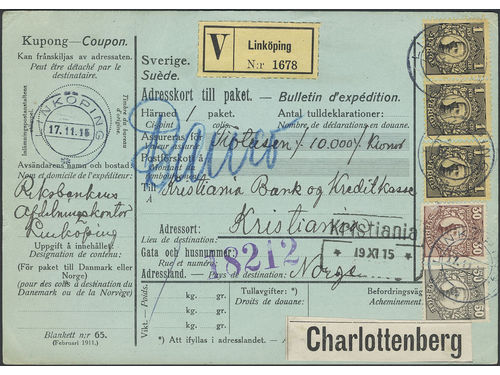 Kupong—Coupon.
Kan frånskiljas av adressaten.
Peut être détaché par le
destinataire.
Inlämningspostanstaltens
Timbre du bureau
LINKÖPING
17.11.15
Avsändarens namn och bostad:
Nom et domicile de l'expéditeur:
Riksbankens
Afdelningskontor
Linköping
Uppgift å innehållet:
Désignation de contenu:
(För paket till Danmark eller
Norge)
(pour des colis à destination du
Danemark ou de la Norvège)
Blankett nr 65.
(Februari 1911.)
V
Linköping
N:r 1678
Sverige.
Suède.
Adresskort till paket. — Bulletin d'expédition.
Härmed / paket.
Ci-joint colis.
Antal tulldeklarationer:
Nombre de déclarations en douane.
Assureras för
Valeur
10.000 Kronor
Postförskott å
Till
À
Kristiania Bank og Kreditkasse
Adressort:
Lieu de destination:
Kristiania
Kristiania
19 XI 15
Gata och husnummer:
Rue et numéro:
18212
Adressland. — Pays de destination:
Norge
Vikt. — Poids.
kg. gr.
kg. gr.
kg. gr.
Tullavgifter: *)
Droits de douane:
Befordringsväg
Acheminement
*) Att ifyllas i adresslandet.
Charlottenberg
1 1
1 1
1 1
50
50
50